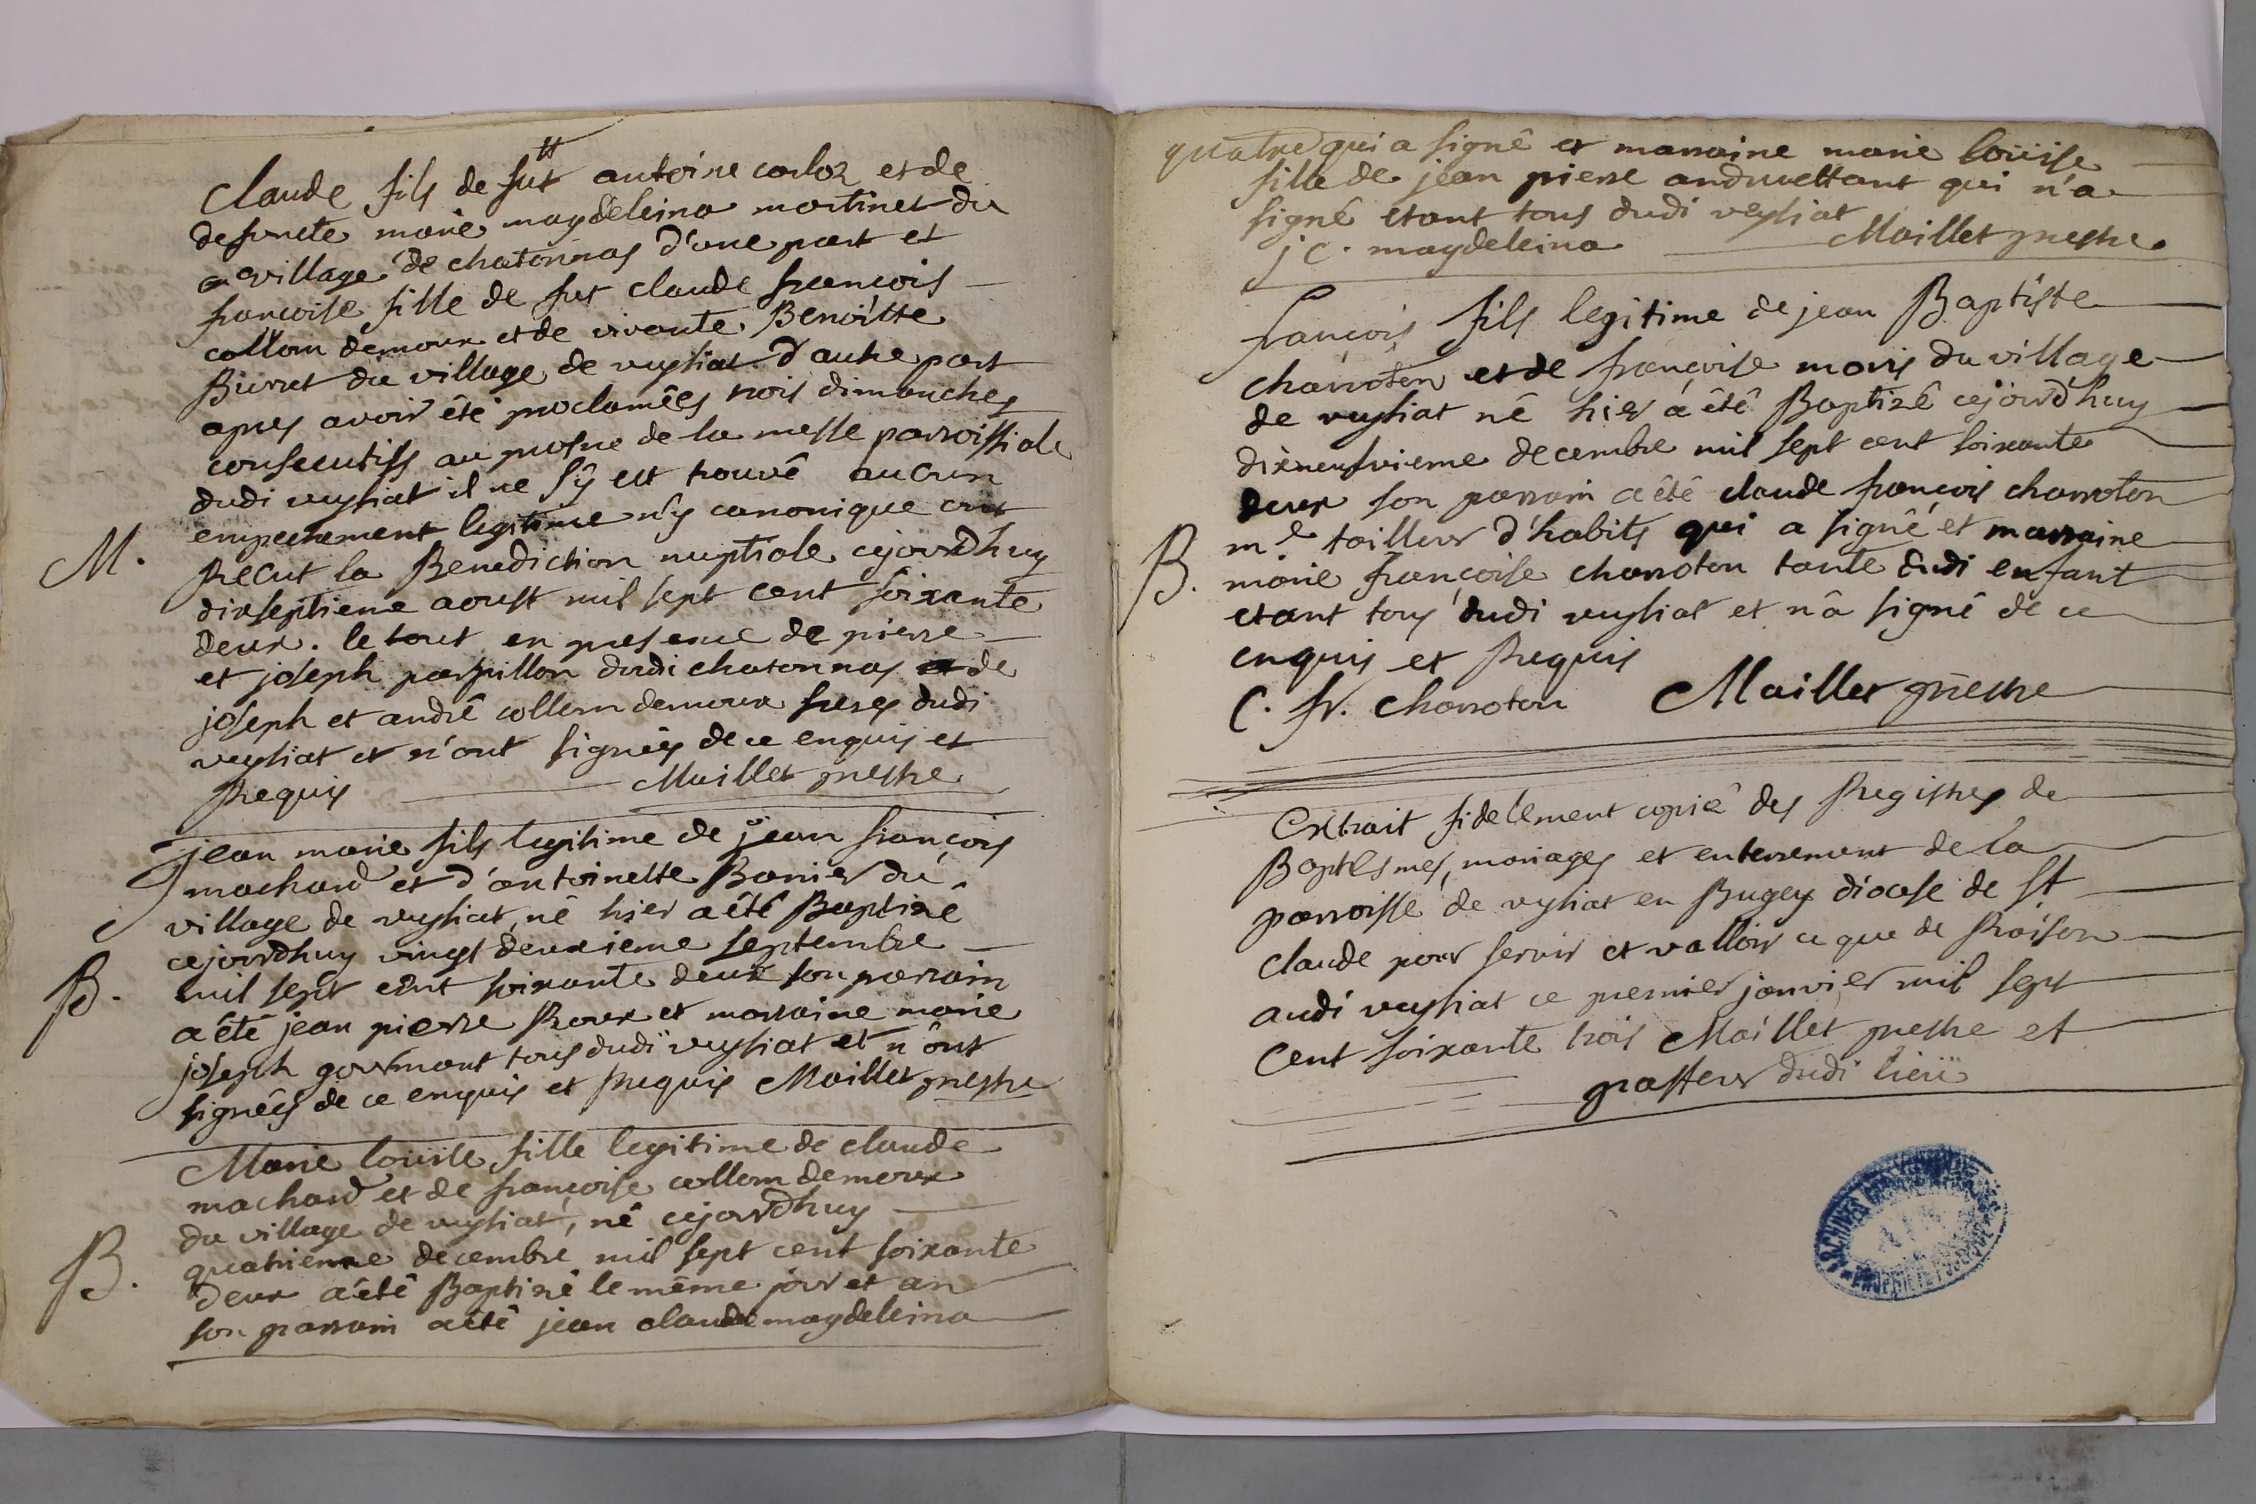 Claude fils de fut antoine carloz et de
defuncte marie magdeleina martinet du
village de chatonnas d'une part et
francoise fille de fut claude francois
collom demoux et de vivante Benoitte
Buvret du village de vysliat d'autre part
apres avoir été proclamêes trois dimanches
consecutifs au prosne de la messe parroissiale
dudi vysliat il ne s'y est trouvê aucun
empechement legitime n'y canonique ont
Recut la Benediction nuptiale cejourdhuy
dixseptieme aoust mil sept cent soixante
M.
deux. le tout en presence de pierre
et joseph parpillon dudi chatonnas et de
joseph et andrê collom demoux freres dudi
vysliat et n'ont signées de ce enquis et
Requis Maillet prestre
jean marie fils legitime de jean françois
machard et d'antoinette Banier du
village de vysliat, nê hier a êtê Baptizê
cejourdhuy vingt deuxieme septembre
B.
mil sept cent soixante deux son parrain
a êtê jean pierre Roux et marraine marie
joseph gourmant tous dudi vysliat et n'ont
signêes de ce enquis et Requis Maillet prestre
Marie loüise fille legitime de claude
machard et de françoise collom demoux
du village de vysliat, nê cejourdhuy
B.
quatrieme decembre mil sept cent soixante
deux a êtê Baptizê le même jour et an
son parrain a êtê jean claude magdeleina
quatre qui a signê et marraine marie loüise
fille de jean pierre andruettant qui n'a
signê etant tous dudi vysliat
j c. magdeleina Maillet prestre
francois fils legitime de jean Baptiste
charroton et de françoise maris du village
de vysliat nê hier a êtê Baptizê cejourdhuy
dixneufvieme decembre mil sept cent soixante
deux son parrain a êtê claude françois charroton
B.
m.e tailleur d'habits qui a signê et marraine
marie françoise charroton tante dudi enfant
etant tous dudi vysliat et n'a signê de ce
enquis et Requis
C. fr. charroton Maillet prestre
Extrait fidellement copiê des Registres de
Baptesmes, mariages et enterrement de la
parroisse de vysliat en Bugey diocese de st
Claude pour servir et valloir ce que de Raison
audi vysliat ce premier janvier mil sept
Cent soixante trois Maillet prestre et
pasteur dudi lieü
ARCHIVES
PROPRIETE PUBLIQUE